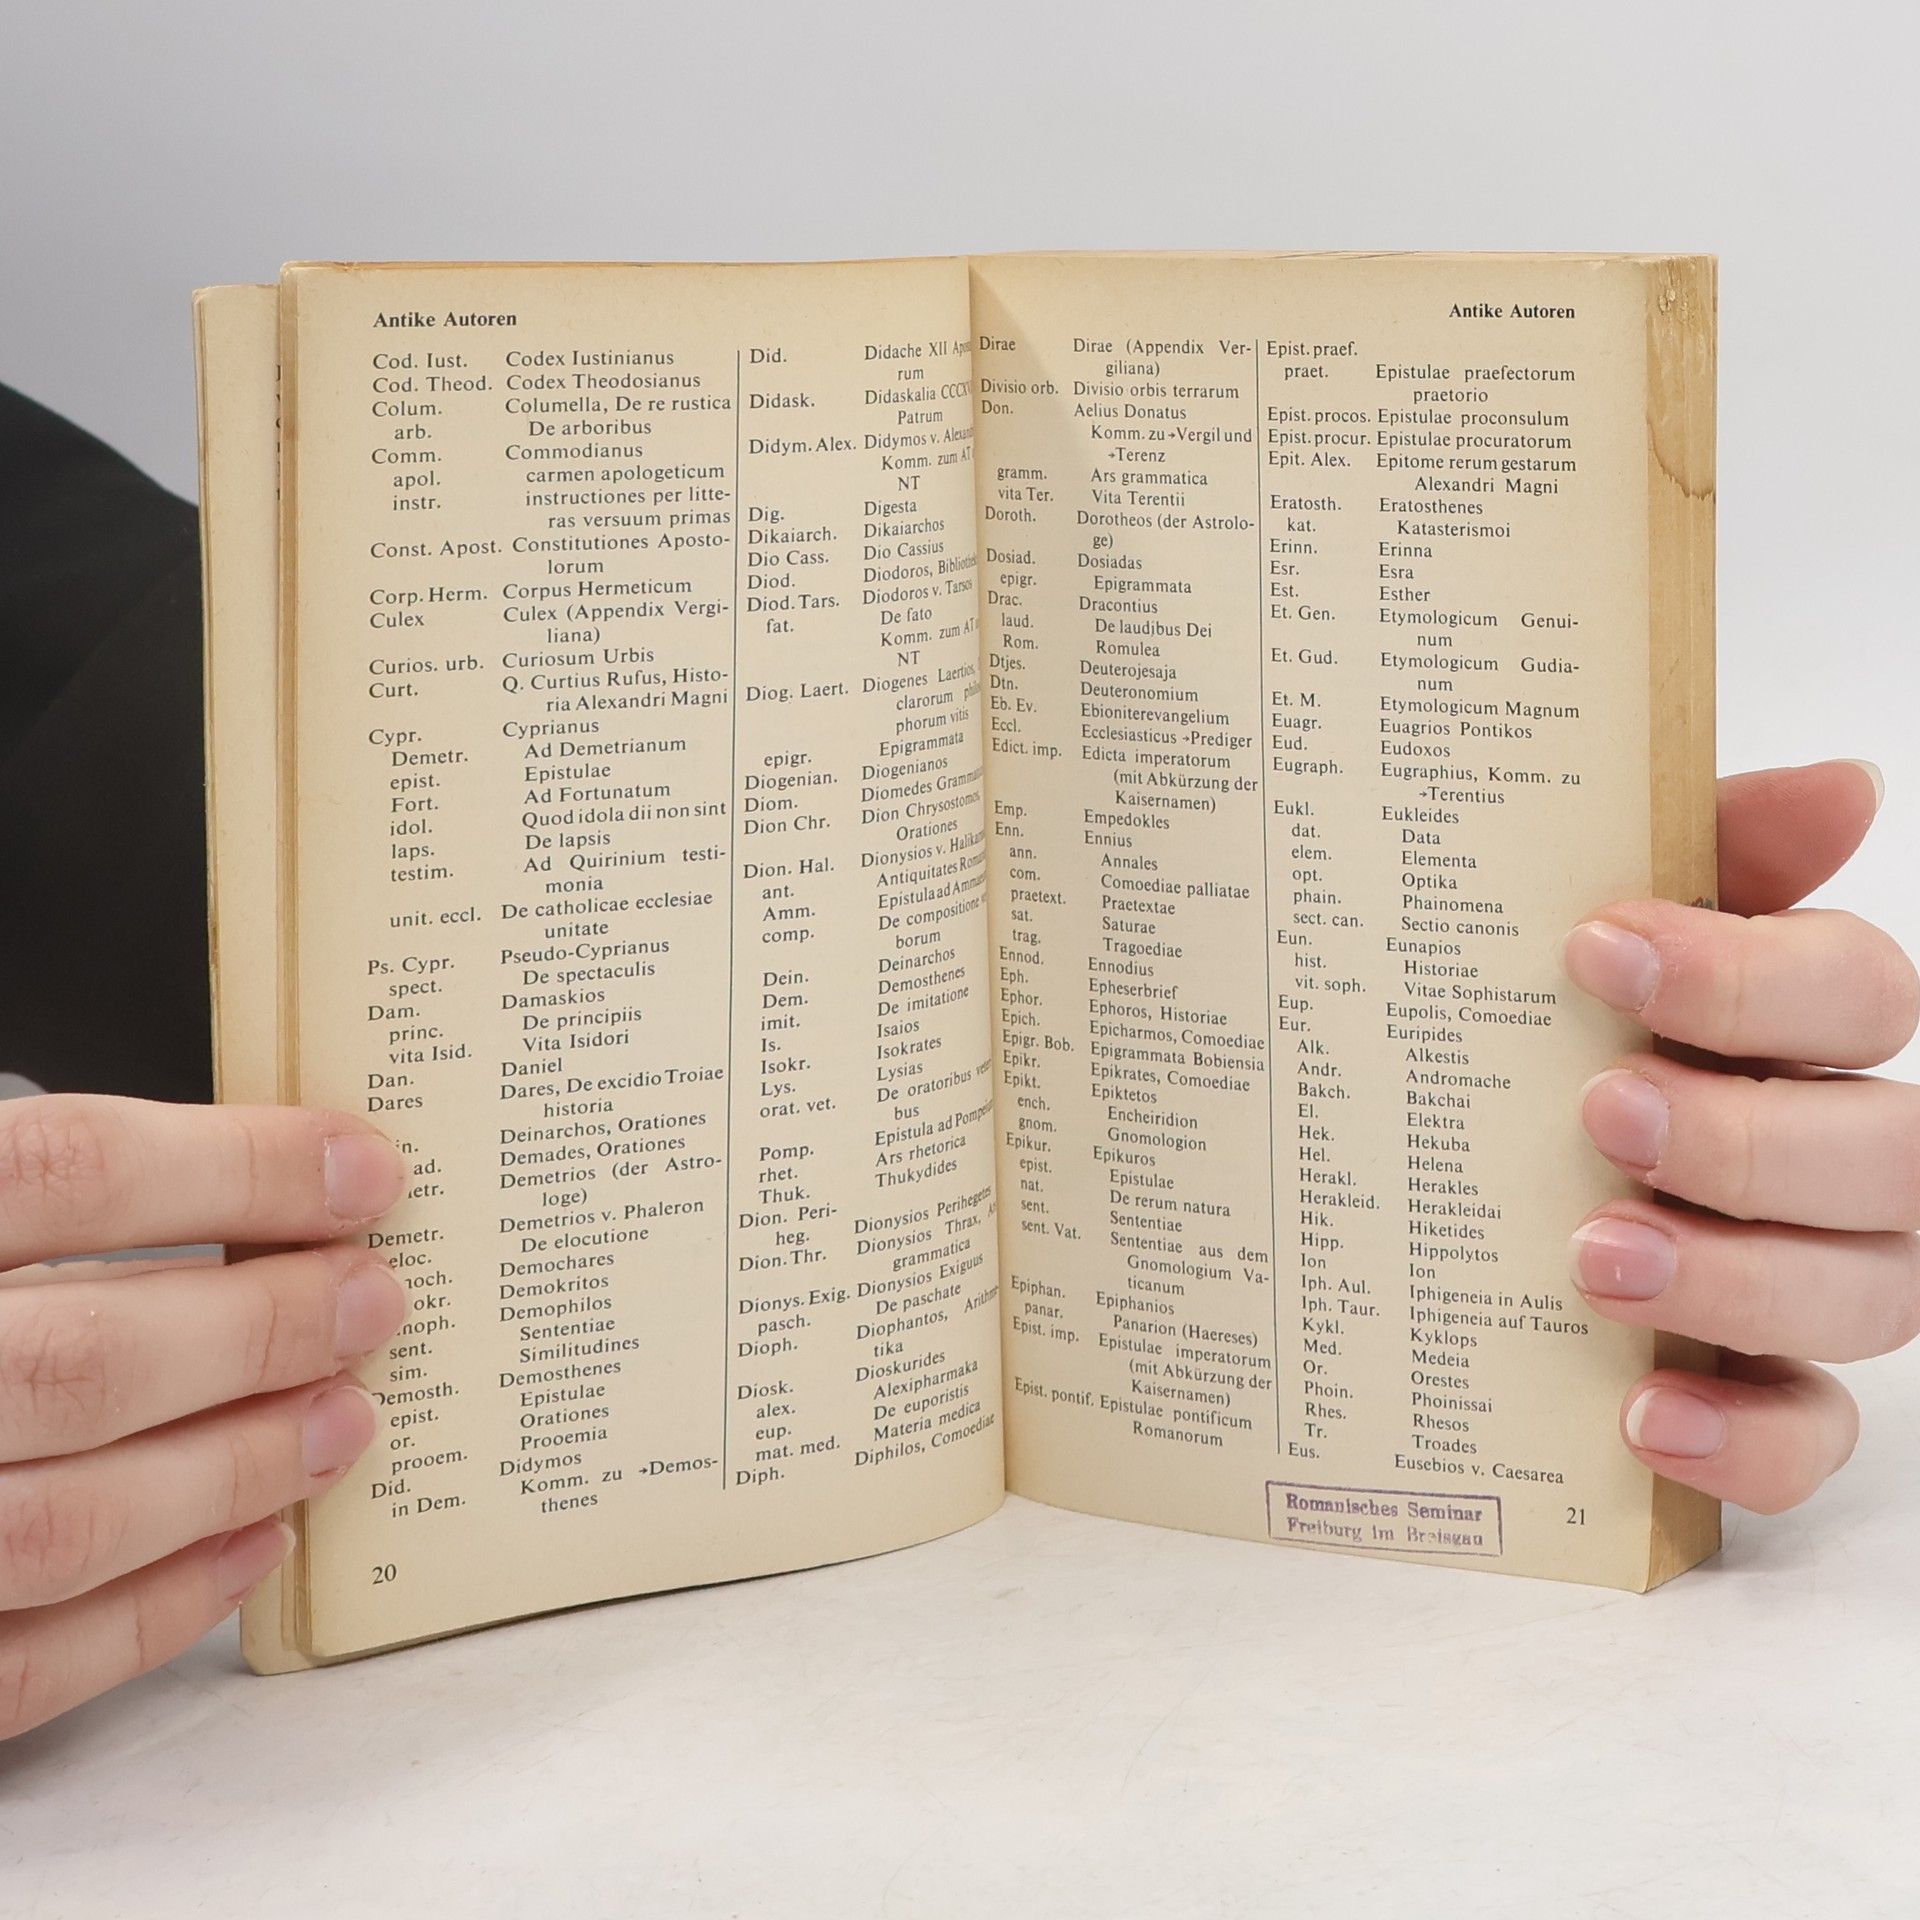 Antike Autoren
Cod. Iust. Codex Iustinianus
Cod. Theod. Codex Theodosianus
Colum. Columella, De re rustica
arb. De arboribus
Comm. Commodianus
apol. carmen apologeticum
instr. instructiones per litte-
ras versuum primas
Const. Apost. Constitutiones Aposto-
lorum
Corp. Herm. Corpus Hermeticum
Culex Culex (Appendix Vergi-
liana)
Curios. urb. Curiosum Urbis
Curt. Q. Curtius Rufus, Histo-
ria Alexandri Magni
Cypr. Cyprianus
Demetr. Ad Demetrianum
epist. Epistulae
Fort. Ad Fortunatum
idol. Quod idola dii non sint
laps. De lapsis
testim. Ad Quirinium testi-
monia
unit. eccl. De catholicae ecclesiae
unitate
Ps. Cypr. Pseudo-Cyprianus
spect. De spectaculis
Dam. Damaskios
princ. De principiis
vita Isid. Vita Isidori
Dan. Daniel
Dares Dares, De excidio Troiae
historia
in. Deinarchos, Orationes
ad. Demades, Orationes
etr. Demetrios (der Astro-
loge)
Demetr. Demetrios v. Phaleron
eloc. De elocutione
och. Demochares
okr. Demokritos
noph. Demophilos
sent. Sententiae
sim. Similitudines
Demosth. Demosthenes
epist. Epistulae
or. Orationes
prooem. Prooemia
Did. Didymos
in Dem. Komm. zu →Demos-
thenes
20
Did. Didache XII
rum
Didask. Didaskalia
Patrum
Didym. Alex. Didymos v.
Komm. zum AT
NT
Dig. Digesta
Dikaiarch. Dikaiarchos
Dio Cass. Dio Cassius
Diod. Diodoros,
Diod. Tars. Diodoros v. Tarsos
fat. De fato
Komm. zum AT
NT
Diog. Laert. Diogenes Laertios,
clarorum
phorum vitis
epigr. Epigrammata
Diogenian. Diogenianos
Diom. Diomedes
Dion Chr. Dion Chrysostomos,
Orationes
Dion. Hal. Dionysios v.
ant. Antiquitates
Amm. Epistula ad
comp. De compositione
borum
Dein. Deinarchos
Dem. Demosthenes
imit. De imitatione
Is. Isaios
Isokr. Isokrates
Lys. Lysias
orat. vet. De oratoribus
bus
Pomp. Epistula ad
rhet. Ars rhetorica
Thuk. Thukydides
Dion. Peri-
heg. Dionysios Perihegetes
Dion. Thr. Dionysios Thrax,
grammatica
Dionys. Exig. Dionysios Exiguus
pasch. De paschate
Dioph. Diophantos,
tika
Diosk. Dioskurides
alex. Alexipharmaka
eup. De euporistis
mat. med. Materia medica
Diph. Diphilos, Comoediae
Antike Autoren
Dirae Dirae (Appendix Ver-
giliana)
Divisio orb. Divisio orbis terrarum
Don. Aelius Donatus
Komm. zu →Vergil und
→Terenz
gramm. Ars grammatica
vita Ter. Vita Terentii
Doroth. Dorotheos (der Astrolo-
ge)
Dosiad. Dosiadas
epigr. Epigrammata
Drac. Dracontius
laud. De laudibus Dei
Rom. Romulea
Dtjes. Deuterojesaja
Dtn. Deuteronomium
Eb. Ev. Ebioniterevangelium
Eccl. Ecclesiasticus →Prediger
Edict. imp. Edicta imperatorum
(mit Abkürzung der
Kaisernamen)
Emp. Empedokles
Enn. Ennius
ann. Annales
com. Comoediae palliatae
praetext. Praetextae
sat. Saturae
trag. Tragoediae
Ennod. Ennodius
Eph. Epheserbrief
Ephor. Ephoros, Historiae
Epich. Epicharmos, Comoediae
Epigr. Bob. Epigrammata Bobiensia
Epikr. Epikrates, Comoediae
Epikt. Epiktetos
ench. Encheiridion
gnom. Gnomologion
Epikur. Epikuros
epist. Epistulae
nat. De rerum natura
sent. Sententiae
sent. Vat. Sententiae aus dem
Gnomologium Va-
ticanum
Epiphan. Epiphanios
panar. Panarion (Haereses)
Epist. imp. Epistulae imperatorum
(mit Abkürzung der
Kaisernamen)
Epist. pontif. Epistulae pontificum
Romanorum
Epist. praef.
praet. Epistulae praefectorum
praetorio
Epist. procos. Epistulae proconsulum
Epist. procur. Epistulae procuratorum
Epit. Alex. Epitome rerum gestarum
Alexandri Magni
Eratosth. Eratosthenes
kat. Katasterismoi
Erinn. Erinna
Esr. Esra
Est. Esther
Et. Gen. Etymologicum Genui-
num
Et. Gud. Etymologicum Gudia-
num
Et. M. Etymologicum Magnum
Euagr. Euagrios Pontikos
Eud. Eudoxos
Eugraph. Eugraphius, Komm. zu
→Terentius
Eukl. Eukleides
dat. Data
elem. Elementa
opt. Optika
phain. Phainomena
sect. can. Sectio canonis
Eun. Eunapios
hist. Historiae
vit. soph. Vitae Sophistarum
Eup. Eupolis, Comoediae
Eur. Euripides
Alk. Alkestis
Andr. Andromache
Bakch. Bakchai
El. Elektra
Hek. Hekuba
Hel. Helena
Herakl. Herakles
Herakleid. Herakleidai
Hik. Hiketides
Hipp. Hippolytos
Ion Ion
Iph. Aul. Iphigeneia in Aulis
Iph. Taur. Iphigeneia auf Tauros
Kykl. Kyklops
Med. Medeia
Or. Orestes
Phoin. Phoinissai
Rhes. Rhesos
Tr. Troades
Eus. Eusebios v. Caesarea
Romanisches Seminar
Freiburg im Breisgau
21